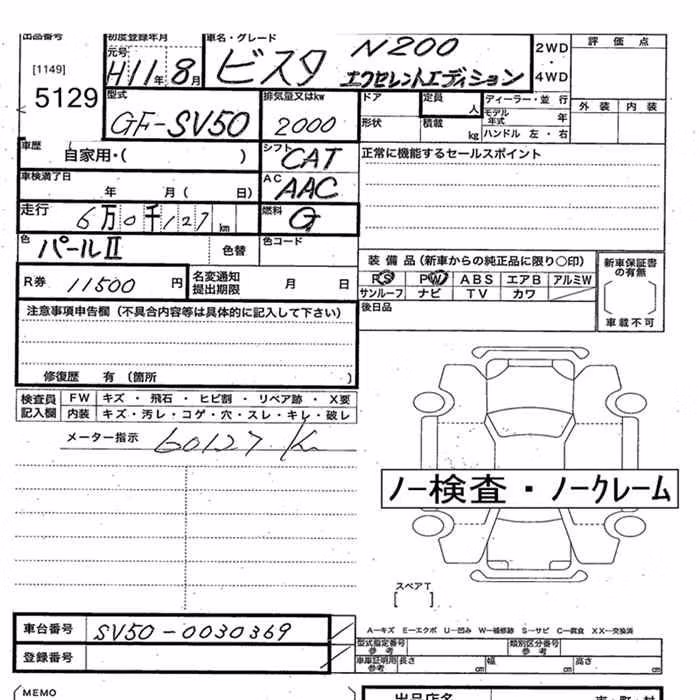 出品番号
[1149]
5129
初度登録年月
元号
H11年8月
車名・グレード
ビスタ N200
エクセレントエディション
2WD
・
4WD
評価点
外装 内装
型式
GF-SV50
排気量又はkw
2000
ドア
形状
定員
人
積載
kg
ディーラー・並行
モデル年式 年
ハンドル 左・右
車歴
自家用・( )
シフト
CAT
正常に機能するセールスポイント
車検満了日
年 月( 日)
AC
AAC
走行
6万0千127km
燃料
G
色
パールⅡ
色替
色コード
R券 11500円
名変通知
提出期限 月 日
装備品(新車からの純正品に限り○印)
PS PW ABS エアB アルミW
サンルーフ ナビ TV カワ
新車保証書
の有無
車載不可
後日品
注意事項申告欄(不具合内容等は具体的に記入して下さい)
修復歴 有(箇所 )
検査員
記入欄
FW キズ・飛石・ヒビ割・リペア跡・X要
内装 キズ・汚レ・コゲ・穴・スレ・キレ・破レ
メーター指示 60127K
ノー検査・ノークレーム
スペアT
[ ]
車台番号 SV50-0030369
登録番号
A-キズ E-エクボ U-凹み W-補修跡 S-サビ C-腐食 XX-交換済
型式指定番号
参考
類別区分番号
参考
車庫証明用
参考
長さ cm 幅 cm 高さ cm
MEMO
出品店名
市・町・村